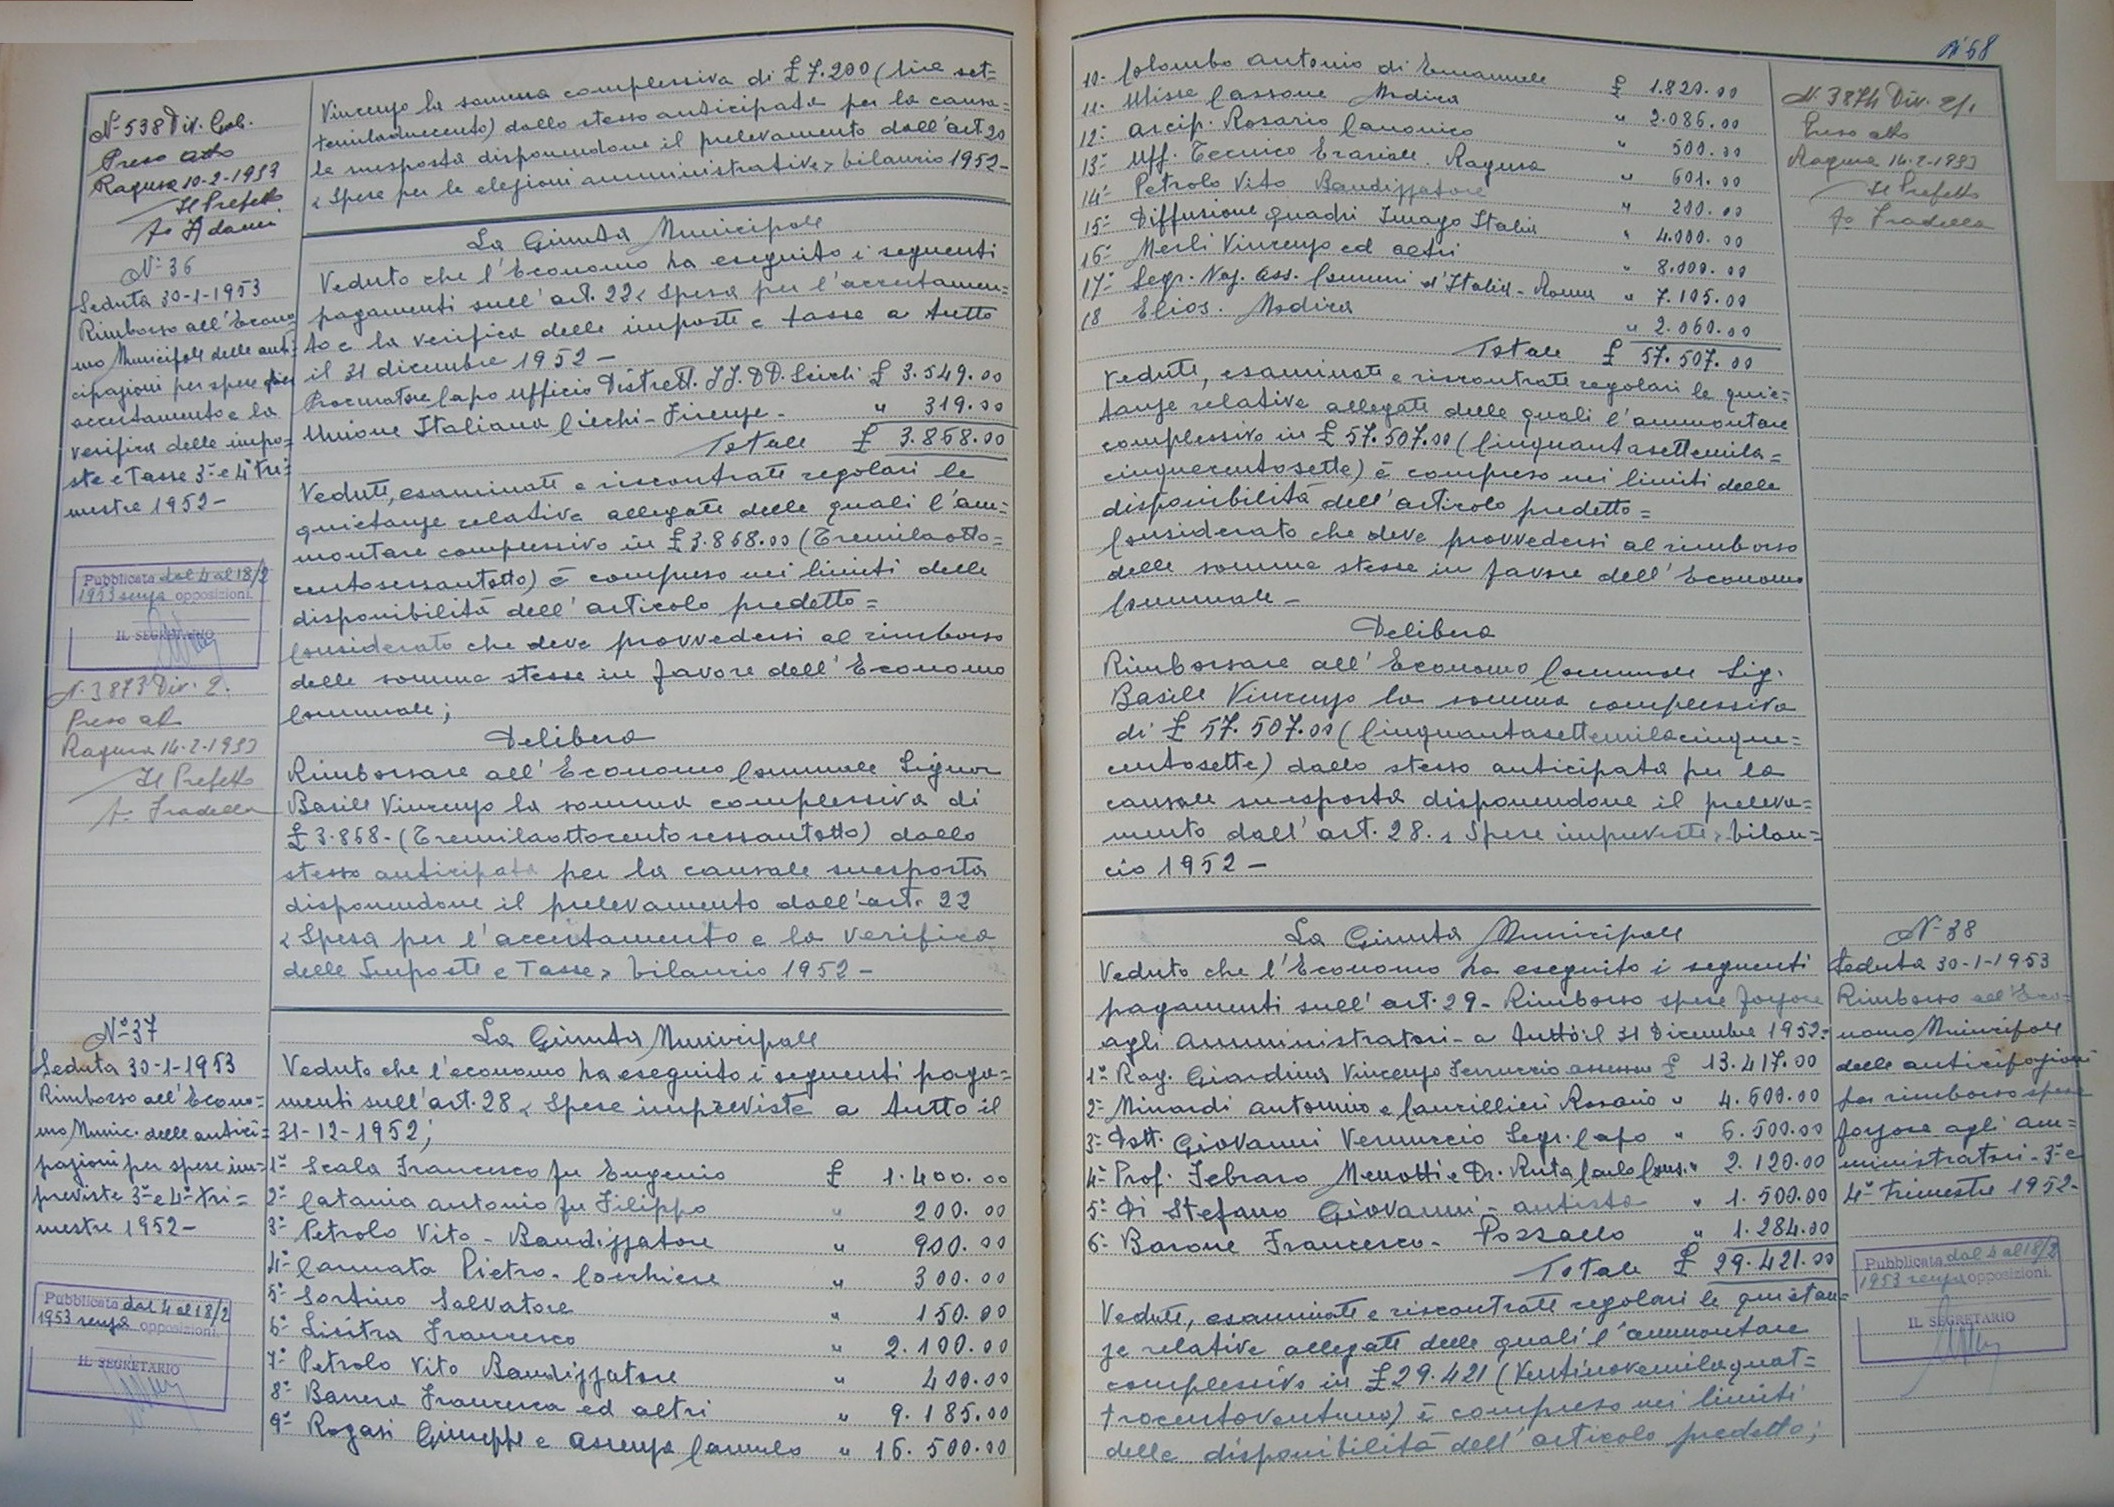 N° 538 Div. Gab.
Preso atto
Ragusa 10-2-1953
Il Prefetto
fo Adami
Vincenzo la somma complessiva di £ 7.200 (lire set=
temiladuecento) dallo stesso anticipata per la causa=
le suesposta disponendone il prelevamento dall'art 20
« Spese per le elezioni amministrative » bilancio 1952-
N° 36
Seduta 30-1-1953
Rimborso all'Econo
mo Municipale delle anti=
cipazioni per spese
accertamento e la
verifica delle impo=
ste e Tasse 3° e 4° tri=
mestre 1952-
Pubblicata dal 4 al 18/2
1953 senza opposizioni.
IL SEGRETARIO
N. 3873 Div. 2.
Preso att
Ragusa 14-2-1953
Il Prefetto
fo Fradella
La Giunta Municipale
Veduto che l'Economo ha eseguito i seguenti
pagamenti sull'art. 22 « Spesa per l'accertamen=
to e la verifica delle imposte e tasse a tutto
il 31 dicembre 1952 -
Procuratore Capo Ufficio Distrett. II. DD. Scicli £ 3.549.00
Unione Italiana Ciechi - Firenze - " 319.00
Totale £ 3.868.00
Vedute, esaminate e riscontrate regolari le
quietanze relative allegate delle quali l'am=
montare complessivo in £ 3.868.00 (Tremilaotto=
centosessantotto) è compreso nei limiti delle
disponibilità dell'articolo predetto =
Considerato che deve provvedersi al rimborso
delle somme stesse in favore dell'Economo
Comunale;
Delibera
Rimborsare all'Economo Comunale Signor
Basile Vincenzo la somma complessiva di
£ 3.868- (Tremilaottocentosessantotto) dallo
stesso anticipata per la causale suesposta
disponendone il prelevamento dall'art. 22
« Spesa per l'accertamento e la verifica
delle Imposte e Tasse » bilancio 1952 -
N° 37
Seduta 30-1-1953
Rimborso all'Econo=
mo Munic. delle antici=
pazioni per spese im=
previste 3° e 4° tri=
mestre 1952-
Pubblicata dal 4 al 18/2
1953 senza opposizioni.
IL SEGRETARIO
La Giunta Municipale
Veduto che l'economo ha eseguito i seguenti paga=
menti sull'art. 28 « Spese impreviste a tutto il
31-12-1952;
1° Scala Francesco fu Eugenio £ 1.400.00
2° Catania Antonio fu Filippo " 200.00
3° Petrolo Vito - Banditore " 900.00
4° Cannata Pietro - Cocchiere " 300.00
5° Sortino Salvatore " 150.00
6° Licitra Francesco " 2.100.00
7° Petrolo Vito Banditore " 400.00
8° Barrera Francesca ed altri " 9.185.00
9° Giuseppe e Assenza Carmelo " 16.500.00
N° 68
10- Colombo Antonio di Emanuele £ 1.820.00
11- Ulisse Cassone Modica " 2.086.00
12- Arcip. Rosario Canonico " 500.00
13- Uff. Tecnico Erariale. Ragusa " 601.00
14- Petrolo Vito Banditore " 200.00
15- Diffusione quadri Imago Italia " 4.000.00
16- Merli Vincenzo ed altri " 8.000.00
17- Segr. Naz. Ass. Comuni d'Italia - Roma " 7.105.00
18 Elios. Modica " 2.060.00
Totale £ 57.507.00
Vedute, esaminate e riscontrate regolari le quie=
tanze relative allegate delle quali l'ammontare
complessivo in £ 57.507.00 (Cinquantasettemila=
cinquecentosette) è compreso nei limiti delle
disponibilità dell'articolo predetto =
Considerato che deve provvedersi al rimborso
delle somme stesse in favore dell'Economo
Comunale -
Delibera
Rimborsare all'Economo Comunale Sig.
Basile Vincenzo la somma complessiva
di £ 57.507.00 (Cinquantasettemilacinque=
centosette) dallo stesso anticipata per la
causale suesposta disponendone il preleva=
mento dall'art. 28. « Spese impreviste » bilan=
cio 1952 -
N. 3874 Div. 2/1
Preso atto
Ragusa 14-2-1953
Il Prefetto
fo Fradella
La Giunta Municipale
Veduto che l'Economo ha eseguito i seguenti
pagamenti sull'art. 29 - Rimborso spese forzose
agli Amministratori - a tutto il 31 Dicembre 1952=
1° Rag. Giardina Vincenzo Ferruccio assessore £ 13.417.00
2- Minardi Antonino e Caurillieri Rosario " 4.600.00
3- Dott. Giovanni Vernuccio Segr. Capo " 6.500.00
4- Prof. Febraro Menotti e Dr. Ruta Carlo Cons. " 2.120.00
5- Di Stefano Giovanni - autista " 1.500.00
6- Barone Francesco - Pozzallo " 1.284.00
Totale £ 29.421.00
Vedute, esaminate e riscontrate regolari le quietan=
ze relative allegate delle quali l'ammontare
complessivo in £ 29.421 (Ventinovemilaquat=
trocentoventuno) è compreso nei limiti
delle disponibilità dell'articolo predetto;
N° 38
Seduta 30-1-1953
Rimborso all'Eco=
nomo Municipale
delle anticipazioni
per rimborso spese
forzose agli am=
ministratori - 3° e
4° Trimestre 1952-
Pubblicata dal 4 al 18/2
1953 senza opposizioni.
IL SEGRETARIO